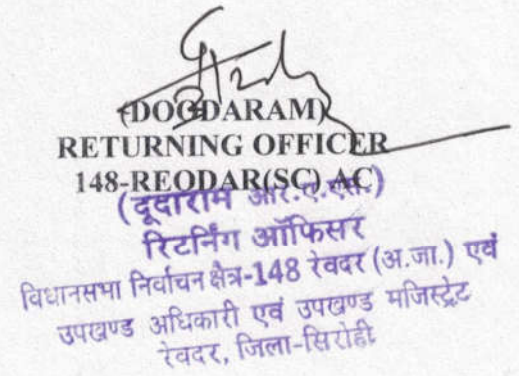 (DOODARAM)
RETURNING OFFICER
148-REODAR(SC) AC
(दूदाराम आर.ए.एस.)
रिटर्निंग ऑफिसर
विधानसभा निर्वाचन क्षेत्र-148 रेवदर (अ.जा.) एवं
उपखण्ड अधिकारी एवं उपखण्ड मजिस्ट्रेट
रेवदर, जिला-सिरोही